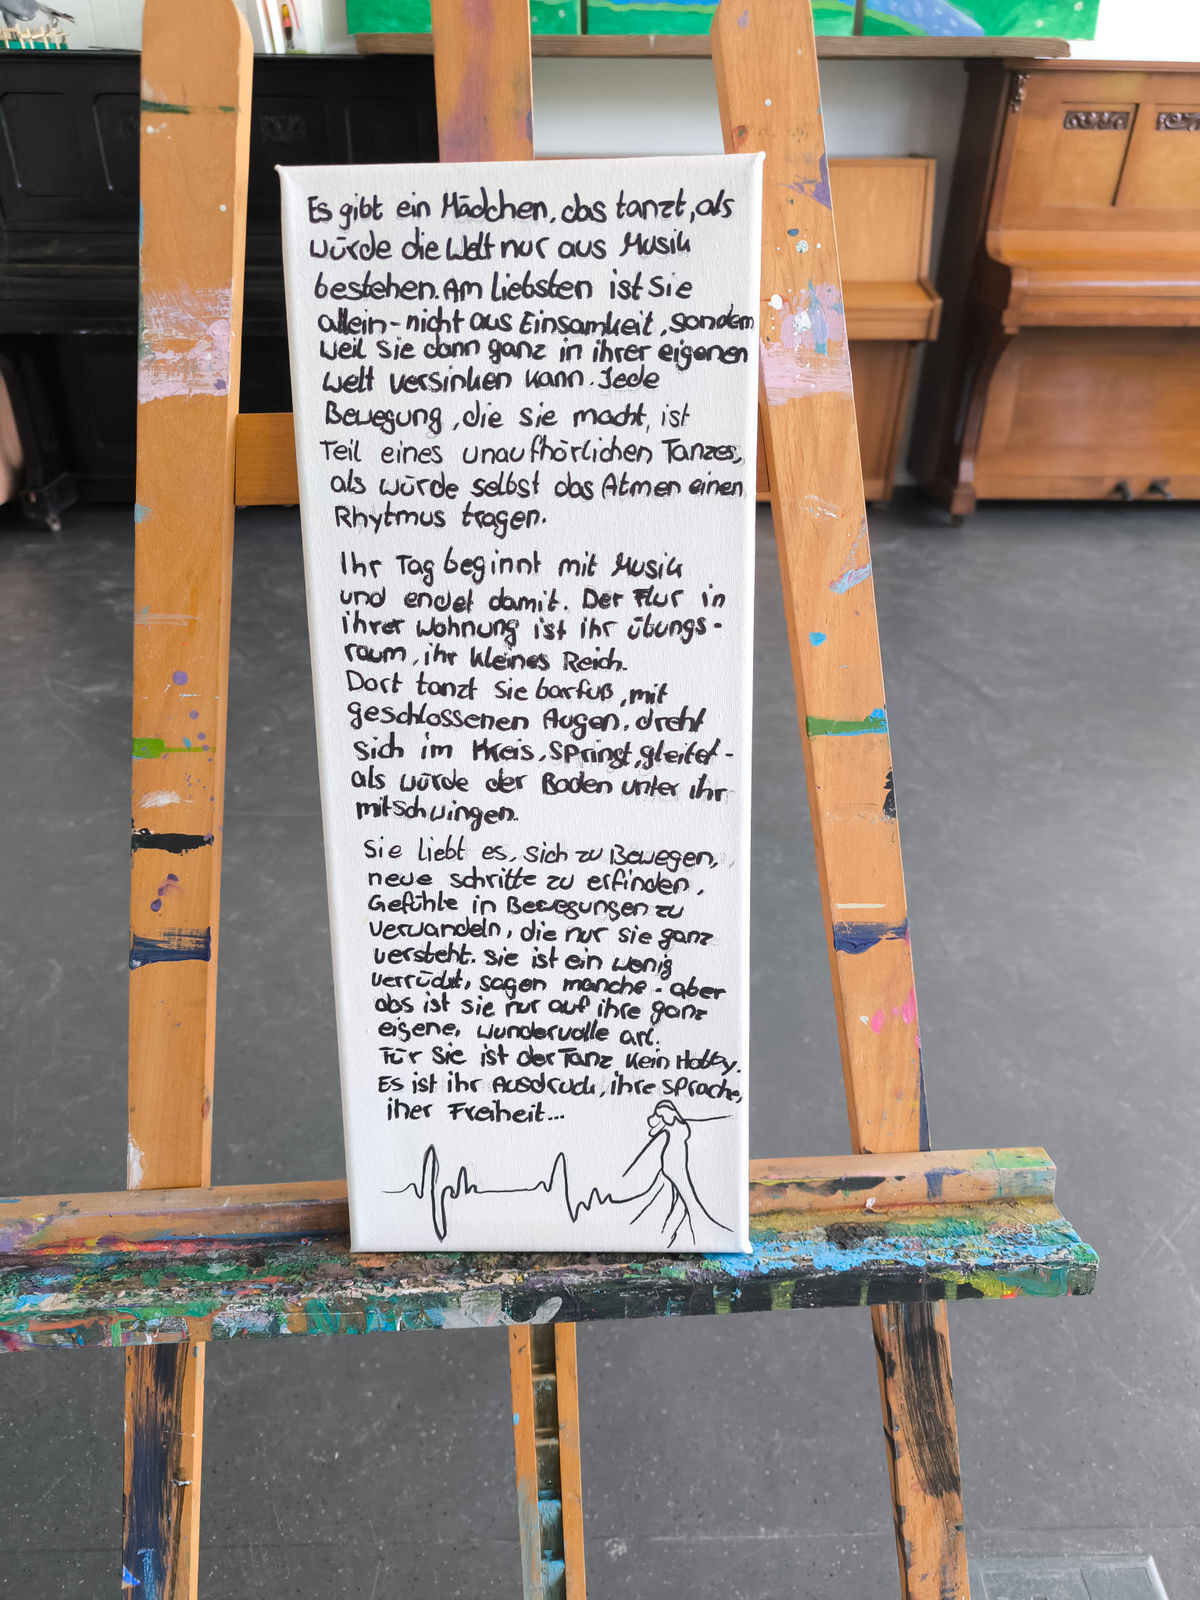 Es gibt ein Mädchen, das tanzt, als
würde die Welt nur aus Musik
bestehen. Am liebsten ist Sie
allein - nicht aus Einsamkeit, sondern
weil sie dann ganz in ihrer eigenen
welt versinken kann. Jede
Bewegung, die sie macht, ist
Teil eines unaufhörlichen Tanzes,
als würde selbst das Atmen einen
Rhytmus tragen.
Ihr Tag beginnt mit Musik
und endet damit. Der Flur in
ihrer Wohnung ist ihr übungs-
raum, ihr kleines Reich.
Dort tanzt sie barfuß, mit
geschlossenen Augen, dreht
sich im Kreis, springt, gleitet -
als würde der Boden unter ihr
mitschwingen.
Sie liebt es, sich zu Bewegen,
neue schritte zu erfinden,
Gefühle in Bewegungen zu
verwandeln, die nur sie ganz
versteht. Sie ist ein wenig
verrückt, sagen manche - aber
das ist sie nur auf ihre ganz
eigene, wundervolle art.
Für Sie ist der Tanz kein Hobby.
Es ist ihr Ausdruck, ihre sprache,
iher Freiheit...